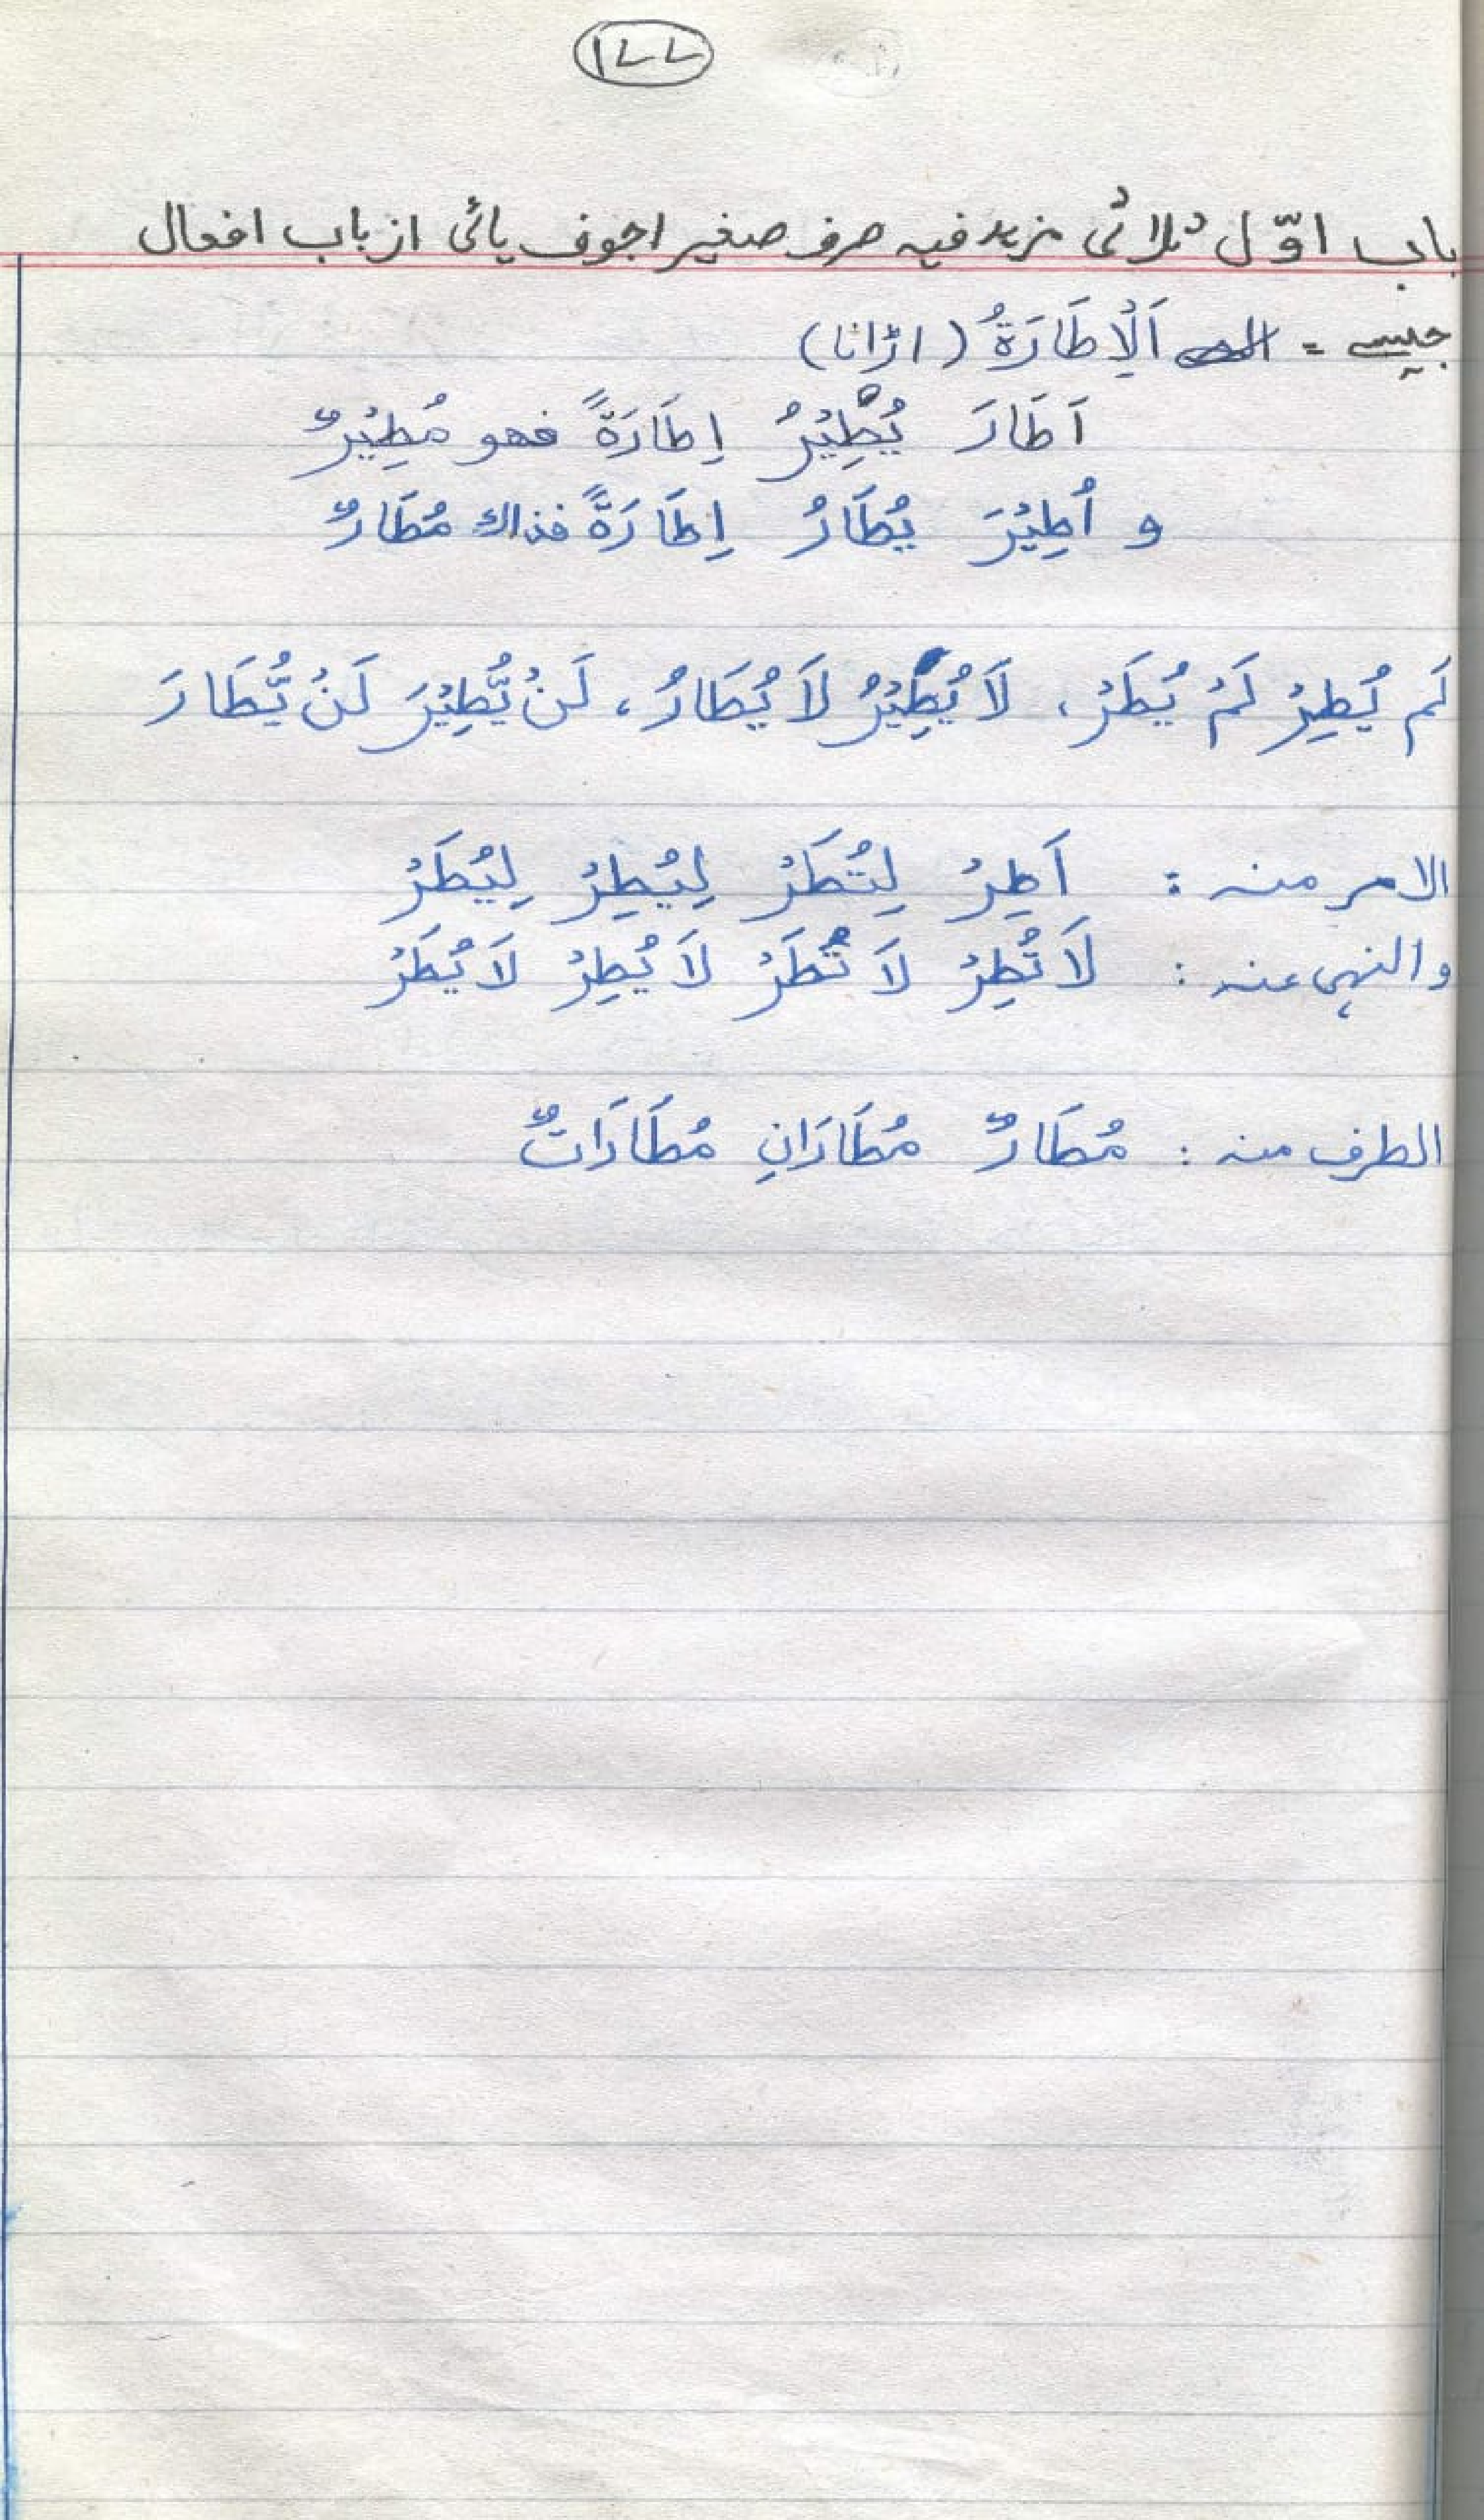 ۱۷۷
باب اوّل ثلاثی مزید فیہ صرف صغیر اجوف یائی از باب افعال
جیسے - اَلْاِطَارَةُ (اڑانا)
اَطَارَ يُطِيْرُ اِطَارَةً فهو مُطِيْرٌ
و اُطِيْرَ يُطَارُ اِطَارَةً فذاك مُطَارٌ
لَم يُطِرْ لَمْ يُطَرْ، لَا يُطِيْرُ لَا يُطَارُ، لَنْ يُّطِيْرَ لَنْ يُّطَارَ
الامر منہ : اَطِرْ لِتُطَرْ لِيُطِرْ لِيُطَرْ
والنہی عنہ : لَا تُطِرْ لَا تُطَرْ لَا يُطِرْ لَا يُطَرْ
الظرف منہ : مُطَارٌ مُطَارَانِ مُطَارَاتٌ